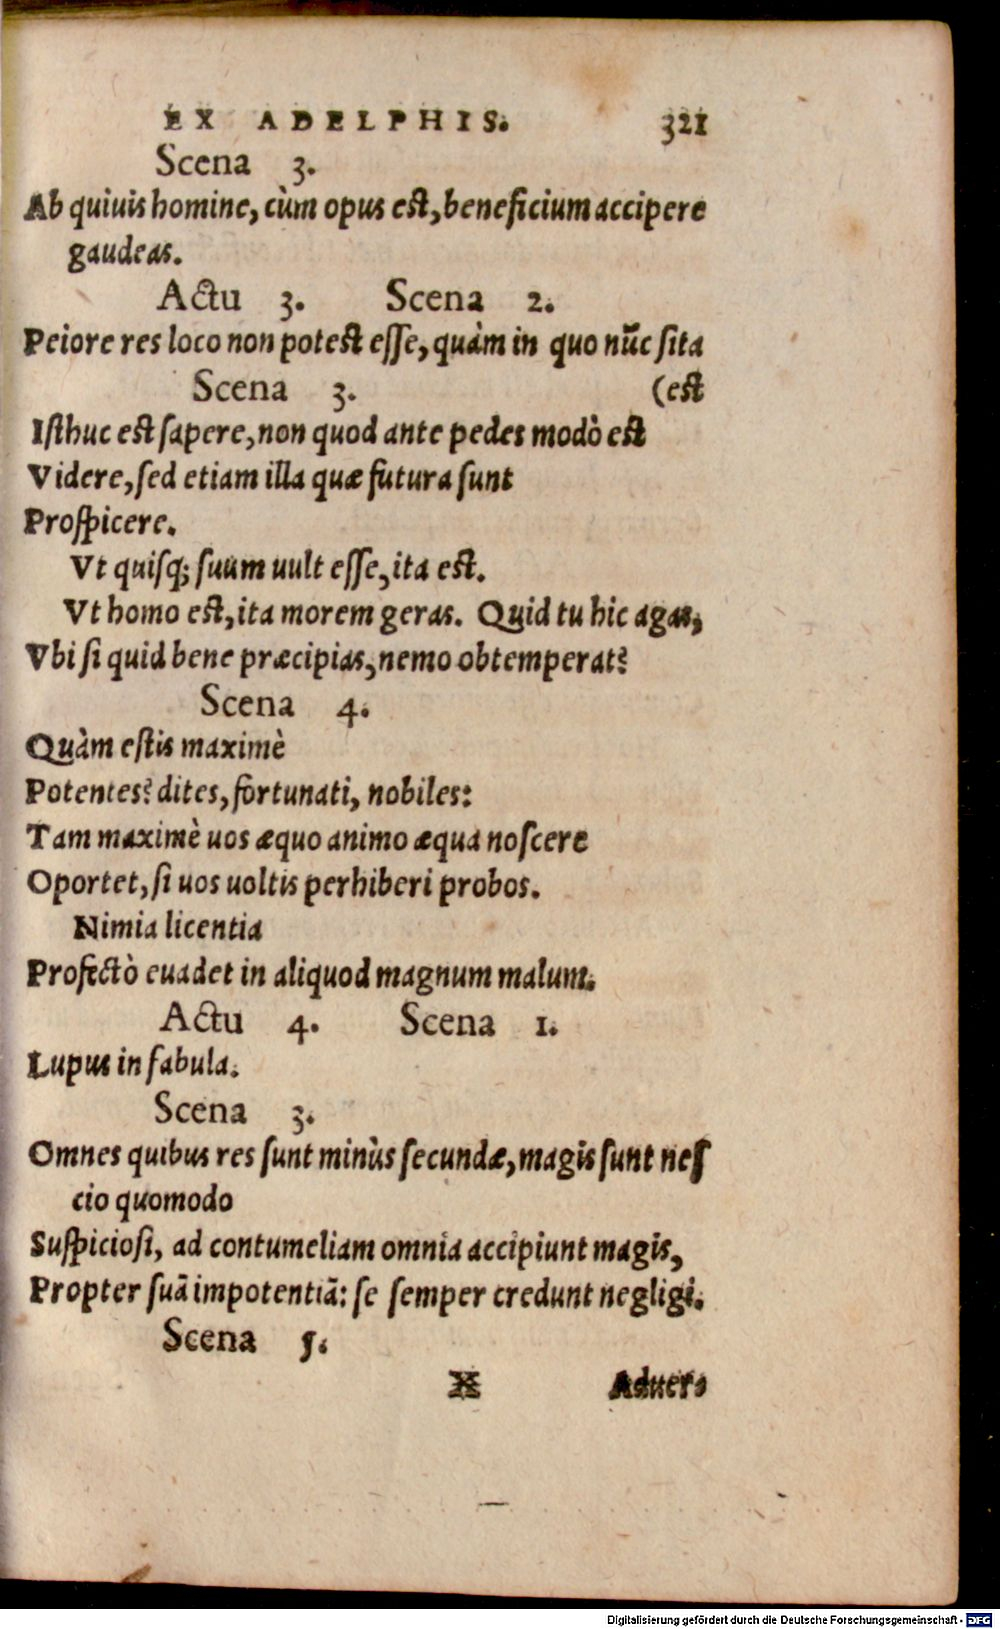 EX ADELPHIS. 321
Scena 3.
Ab quiuis homine, cùm opus est, beneficium accipere
gaudeas.
Actu 3. Scena 2.
Peiore res loco non potest esse, quàm in quo nūc sita
Scena 3. (est
Isthuc est sapere, non quod ante pedes modò est
Videre, sed etiam illa quæ futura sunt
Prospicere.
Vt quisq; suum uult esse, ita est.
Vt homo est, ita morem geras. Quid tu hic agas,
Vbi si quid bene præcipias, nemo obtemperat?
Scena 4.
Quàm estis maximè
Potentes? dites, fortunati, nobiles:
Tam maximè uos æquo animo æqua noscere
Oportet, si uos uoltis perhiberi probos.
Nimia licentia
Profectò euadet in aliquod magnum malum.
Actu 4. Scena 1.
Lupus in fabula.
Scena 3.
Omnes quibus res sunt minùs secundæ, magis sunt nes
cio quomodo
Suspiciosi, ad contumeliam omnia accipiunt magis,
Propter suā impotentiā: se semper credunt negligi.
Scena 5.
X Aduer-
Digitalisierung gefördert durch die Deutsche Forschungsgemeinschaft - DFG